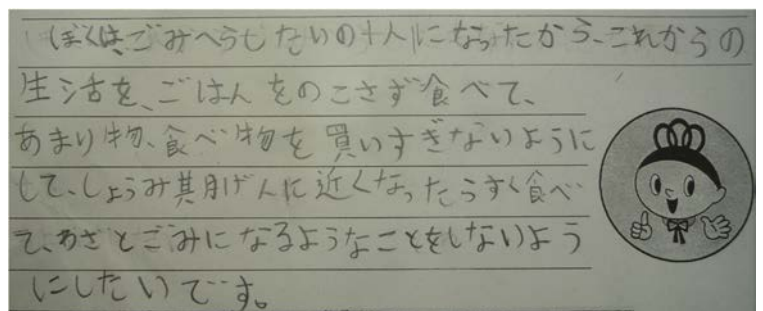 ぼくは、ごみへらしたいの一人になったから、これからの
生活を、ごはんをのこさず食べて、
あまり物、食べ物を買いすぎないように
して、しょうみ期げんに近くなったらすぐ食べ
て、わざとごみになるようなことをしないよう
にしたいです。